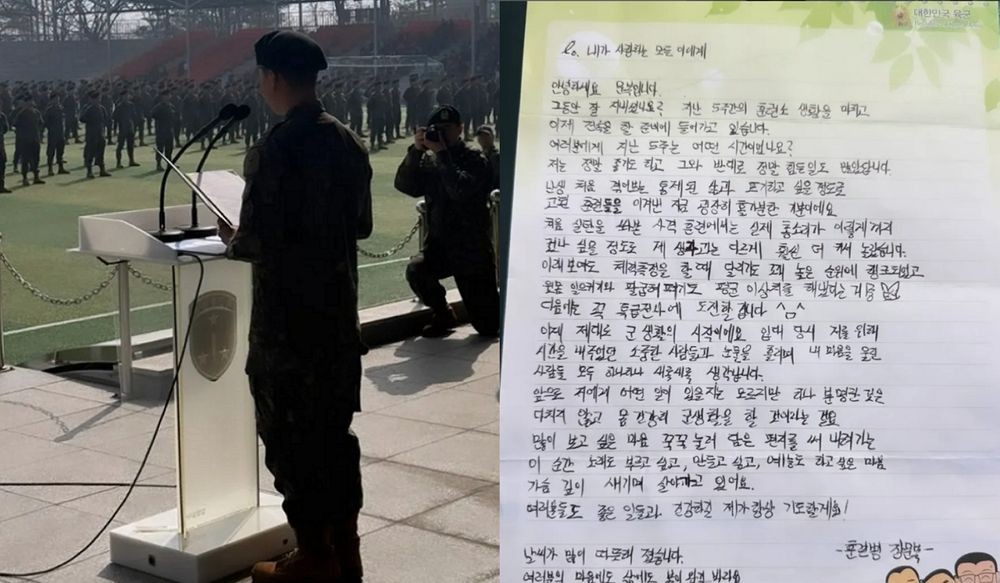 대한민국 육군
To. 내가 사랑하는 모든 이에게
안녕하세요 문복입니다.
그동안 잘 지내셨나요? 지난 5주간의 훈련소 생활을 마치고
이제 전속을 할 준비에 들어가고 있습니다.
여러분에게 지난 5주는 어떤 시간이었나요?
저는 정말 좋기도 하고 그와 반대로 정말 힘든일도 많았습니다.
난생 처음 겪어보는 통제된 삶과 포기하고 싶을 정도로
고된 훈련들을 이겨낸 지금 굉장히 홀가분한 기분이에요
처음 실탄을 쏴본 사격 훈련에서는 실제 총소리가 이렇게 까지
컸나 싶을 정도로 제 생각과는 다르게 훨씬 더 커서 놀랐습니다.
이래 보여도 체력측정을 할 때 달리기도 꽤 높은 순위에 랭크되었고
윗몸 일으키기와 팔굽혀 펴기도 평균 이상치를 해냈다는 기쁨
다음에는 꼭 특급전사에 도전할겁니다 ^ㅁ^
이제 제대로 군 생활의 시작이에요. 입대 당시 저를 위해
시간을 내주었던 소중한 사람들과 눈물을 흘리며 내 마음을 울린
사람들 모두 하나하나 새록새록 생각납니다.
앞으로 저에게 어떤 일이 있을지는 모르지만 하나 분명한 것은
다치지 않고 몸 건강히 군생활을 할 것이라는 걸요
많이 보고 싶은 마음 꾹꾹 눌러 담은 편지를 써 내려가는
이 순간 노래도 부르고 싶고, 만들고 싶고, 예능도 하고 싶은 마음
가슴 깊이 새기며 살아가고 있어요.
여러분들도 좋은 일들과 건강하길 제가 항상 기도할게요!
-훈련병 장문복-
날씨가 많이 따뜻해 졌습니다.
여러분의 마음에도 삶에도 봄이 왔길 바라요